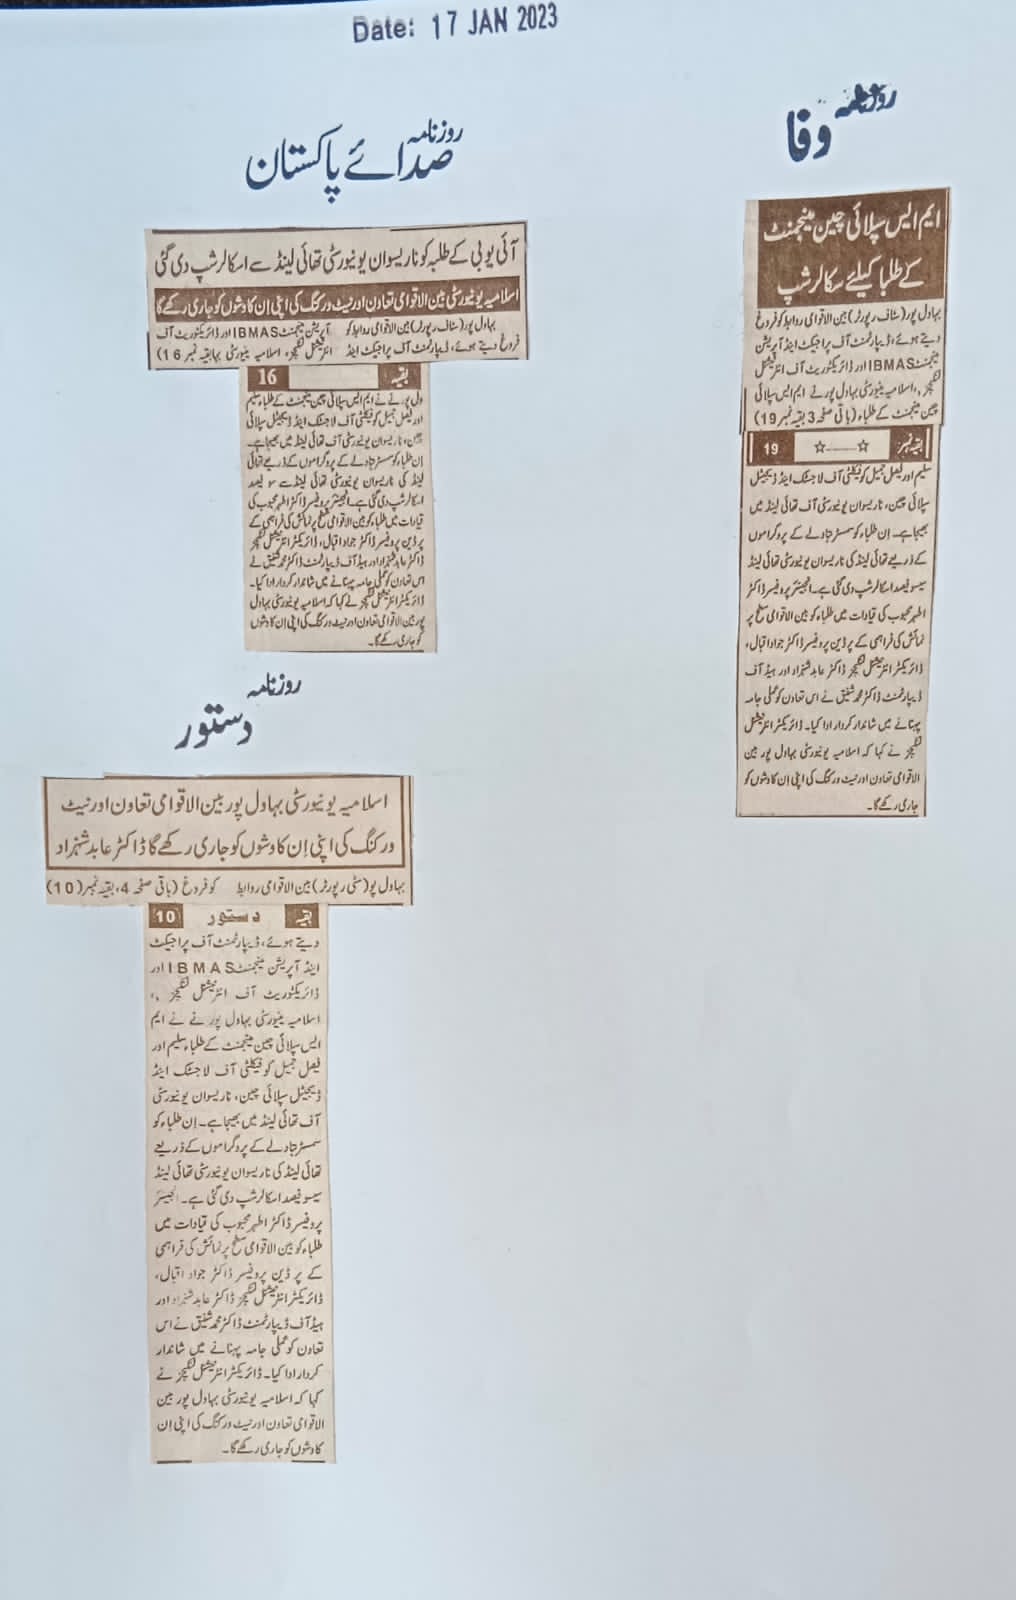 Date: 17 JAN 2023
روزنامہ
وفا
ایم ایس سپلائی چین مینجمنٹ
کے طلبا کیلئے سکالرشپ
بہاول پور (سٹاف رپورٹر) بین الاقوامی روابط کو فروغ
دیتے ہوئے، ڈیپارٹمنٹ آف پراجیکٹ اینڈ آپریشن
مینجمنٹ IBMAS اور ڈائریکٹوریٹ آف انٹرنیشنل
لنگیجز ،اسلامیہ یونیورسٹی بہاول پور نے ایم ایس سپلائی
چین مینجمنٹ کے طلباء (باقی صفحہ 3 بقیہ نمبر 19)
بقیہ نمبر ☆......☆ 19
سلیم اور فیصل جمیل کو فیکلٹی آف لاجسٹک اینڈ ڈیجیٹل
سپلائی چین، ناریسوان یونیورسٹی آف تھائی لینڈ میں
بھیجا ہے۔ اِن طلباء کو سمسٹر تبادلے کے پروگراموں
کے ذریعے تھائی لینڈ کی ناریسوان یونیورسٹی تھائی لینڈ
سے سو فیصد اسکالرشپ دی گئی ہے۔ انجینئر پروفیسر ڈاکٹر
اطہر محبوب کی قیادات میں طلباء کو بین الاقوامی سطح پر
نمائش کی فراہمی کے پر ڈین پروفیسر ڈاکٹر جواد اقبال،
ڈائریکٹر انٹرنیشنل لنگیجز ڈاکٹر عابد شہزاد اور ہیڈ آف
ڈیپارٹمنٹ ڈاکٹر محمد شفیق نے اس تعاون کو عملی جامہ
پہنانے میں شاندار کردار ادا کیا۔ ڈائریکٹر انٹرنیشنل
لنگیجز نے کہا کہ اسلامیہ یونیورسٹی بہاول پور بین
الاقوامی تعاون اور نیٹ ورکنگ کی اپنی اِن کاوشوں کو
جاری رکھے گا۔
روزنامہ
صدائے پاکستان
آئی یو بی کے طلبہ کو ناریسوان یونیورسٹی تھائی لینڈ سے اسکالرشپ دی گئی
اسلامیہ یونیورسٹی بین الاقوامی تعاون اور نیٹ ورکنگ کی اپنی اِن کاوشوں کو جاری رکھے گا
بہاول پور (سٹاف رپورٹر) بین الاقوامی روابط کو
فروغ دیتے ہوئے، ڈیپارٹمنٹ آف پراجیکٹ اینڈ
آپریشن مینجمنٹ IBMAS اور ڈائریکٹوریٹ آف
انٹرنیشنل لنگیجز، اسلامیہ یونیورسٹی بہا بقیہ نمبر 16)
بقیہ 16
ول پور نے نے ایم ایس سپلائی چین مینجمنٹ کے طلباء سلیم
اور فیصل جمیل کو فیکلٹی آف لاجسٹک اینڈ ڈیجیٹل سپلائی
چین، ناریسوان یونیورسٹی آف تھائی لینڈ میں بھیجا ہے۔
اِن طلباء کو سمسٹر تبادلے کے پروگراموں کے ذریعے تھائی
لینڈ کی ناریسوان یونیورسٹی تھائی لینڈ سے سو فیصد
اسکالرشپ دی گئی ہے۔ انجینئر پروفیسر ڈاکٹر اطہر محبوب کی
قیادات میں طلباء کو بین الاقوامی سطح پر نمائش کی فراہمی کے
پر ڈین پروفیسر ڈاکٹر جواد اقبال، ڈائریکٹر انٹرنیشنل لنگیجز
ڈاکٹر عابد شہزاد اور ہیڈ آف ڈیپارٹمنٹ ڈاکٹر محمد شفیق نے
اس تعاون کو عملی جامہ پہنانے میں شاندار کردار ادا کیا۔
ڈائریکٹر انٹرنیشنل لنگیجز نے کہا کہ اسلامیہ یونیورسٹی بہاول
پور بین الاقوامی تعاون اور نیٹ ورکنگ کی اپنی اِن کاوشوں
کو جاری رکھے گا۔
روزنامہ
دستور
اسلامیہ یونیورسٹی بہاول پور بین الاقوامی تعاون اور نیٹ
ورکنگ کی اپنی اِن کاوشوں کو جاری رکھے گا ڈاکٹر عابد شہزاد
بہاول پو (سٹی رپورٹر) بین الاقوامی روابط کو فروغ (باقی صفحہ 4، بقیہ نمبر (10)
بقیہ دستور 10
دیتے ہوئے، ڈیپارٹمنٹ آف پراجیکٹ
اینڈ آپریشن مینجمنٹ IBMAS اور
ڈائریکٹوریٹ آف انٹرنیشنل لنگیجز ،،
اسلامیہ یونیورسٹی بہاول پور نے نے ایم
ایس سپلائی چین مینجمنٹ کے طلباء سلیم اور
فیصل جمیل کو فیکلٹی آف لاجسٹک اینڈ
ڈیجیٹل سپلائی چین، ناریسوان یونیورسٹی
آف تھائی لینڈ میں بھیجا ہے۔ اِن طلباء کو
سمسٹر تبادلے کے پروگراموں کے ذریعے
تھائی لینڈ کی ناریسوان یونیورسٹی تھائی لینڈ
سے سو فیصد اسکالرشپ دی گئی ہے۔ انجینئر
پروفیسر ڈاکٹر اطہر محبوب کی قیادات میں
طلباء کو بین الاقوامی سطح پر نمائش کی فراہمی
کے پر ڈین پروفیسر ڈاکٹر جواد اقبال،
ڈائریکٹر انٹرنیشنل لنگیجز ڈاکٹر عابد شہزاد اور
ہیڈ آف ڈیپارٹمنٹ ڈاکٹر محمد شفیق نے اس
تعاون کو عملی جامہ پہنانے میں شاندار
کردار ادا کیا۔ ڈائریکٹر انٹرنیشنل لنگیجز نے
کہا کہ اسلامیہ یونیورسٹی بہاول پور بین
الاقوامی تعاون اور نیٹ ورکنگ کی اپنی اِن
کاوشوں کو جاری رکھے گا۔